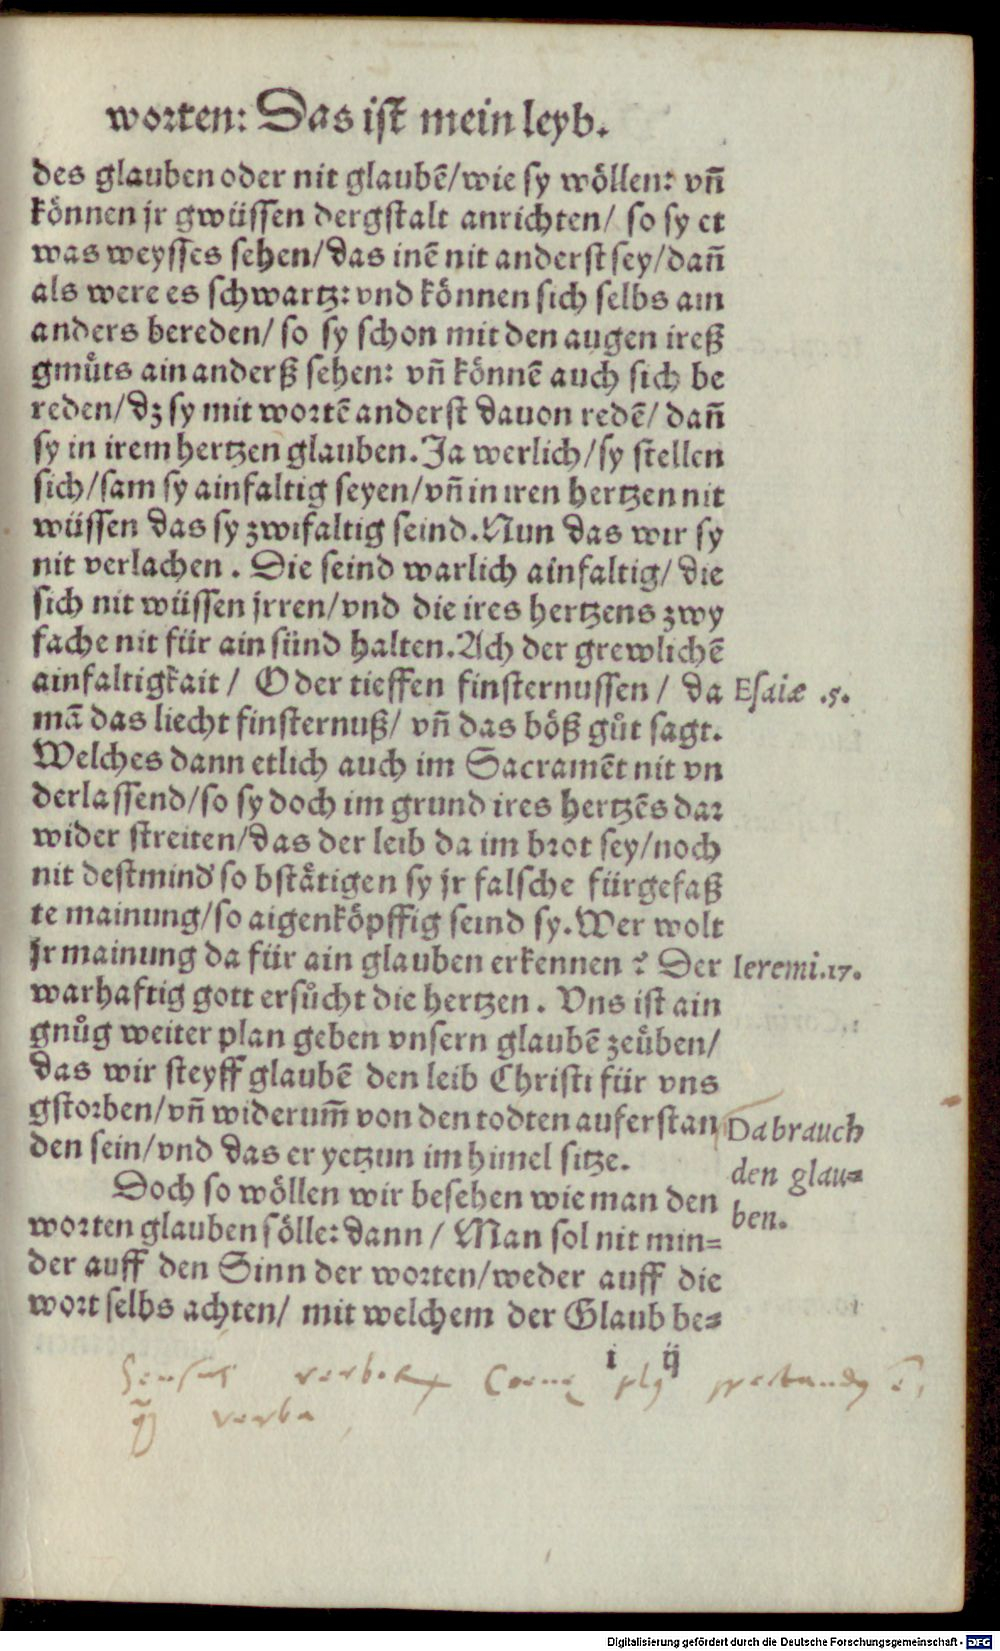 worten: Das ist mein leyb.
des glauben oder nit glaubē/wie sy wöllen: vn̄
können jr gwüssen dergstalt anrichten/ so sy et
was weysses sehen/das inē nit anderst sey/dan̄
als were es schwartz: vnd können sich selbs ain
anders bereden/ so sy schon mit den augen ireß
gmuͤts ain anderß sehen: vn̄ könnē auch sich be
reden/dz sy mit wortē anderst dauon redē/ dan̄
sy in irem hertzen glauben. Ja werlich/sy stellen
sich/sam sy ainfaltig seyen/vn̄ in iren hertzen nit
wüssen das sy zwifaltig seind. Nun das wir sy
nit verlachen. Die seind warlich ainfaltig/ die
sich nit wüssen jrren/vnd die ires hertzens zwy
fache nit für ain sünd halten. Ach der grewlichē
ainfaltigkait/ O der tieffen finsternussen/ da Esaiæ .5.
mā das liecht finsternuß/ vn̄ das böß guͦt sagt.
Welches dann etlich auch im Sacramēt nit vn
derlassend/so sy doch im grund ires hertzēs dar
wider streiten/das der leib da im brot sey/noch
nit destmind' so bstätigen sy jr falsche fürgefaß
te mainung/so aigenköpffig seind sy. Wer wolt
jr mainung da für ain glauben erkennen? Der Ieremi.17.
warhaftig gott ersuͦcht die hertzen. Vns ist ain
gnuͦg weiter plan geben vnsern glaubē zeüben/
das wir steyff glaubē den leib Christi für vns
gstorben/vn̄ widerum̄ von den todten auferstan
den sein/vnd das er yetzun im himel sitze.
Da brauch
den glau=
ben.
Doch so wöllen wir besehen wie man den
worten glauben sölle: dann/ Man sol nit min=
der auff den Sinn der worten/weder auff die
wort selbs achten/ mit welchem der Glaub be=
i ij
Sensus verborū Coenę
verba
Digitalisierung gefördert durch die Deutsche Forschungsgemeinschaft - DFG